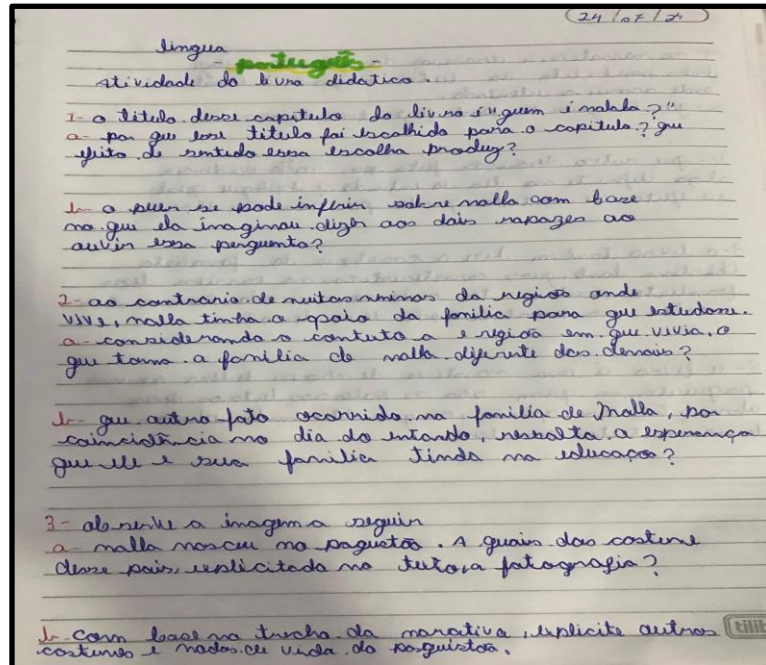 24/07/25
lingua
- português -
Atividade do livro didatico.
1- o titulo desse capitulo do livro é "quem é malala?"
a- por que esse titulo foi escolhido para o capitulo? que
efeito de sentido essa escolha produz?
b- o que se pode inferir sobre malla com base
no que ela imaginou dizer aos dois rapazes ao
ouvir essa pergunta?
2- ao contrario de muitas mininas da região onde
vive, malla tinha o apoio da familia para que estudase.
a- considerando o contexto a e região em que vivia, o
que torna a familia de malla diferente das demais?
b- que outro fato ocorrido na familia de Malla, por
coincidência no dia do atentado, ressalta a esperança
que ele e sua familia tinha na educação?
3- observe a imagem a seguir
a- malla nasceu no paquistão. A quais dos costume
desse pais, explicitada no texto, a fotografia?
b- Com base no trecho da narrativa, explicite outros
costumes e modos de vida do paquistão.
tilit